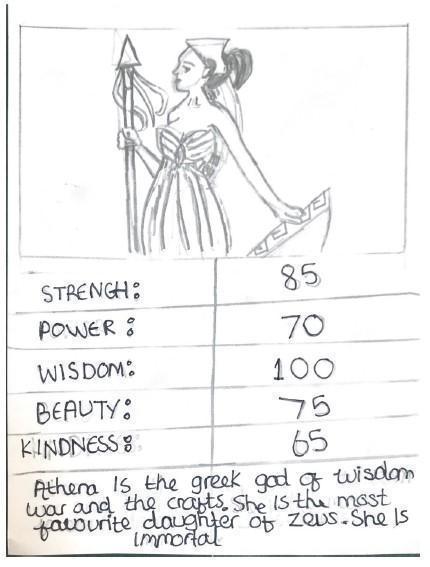 STRENGH: 85
POWER: 70
WISDOM: 100
BEAUTY: 75
KINDNESS: 65
Athena Is the greek god of wisdom
war and the crafts. She Is the most
favourite daughter of zeus. She Is
Immortal